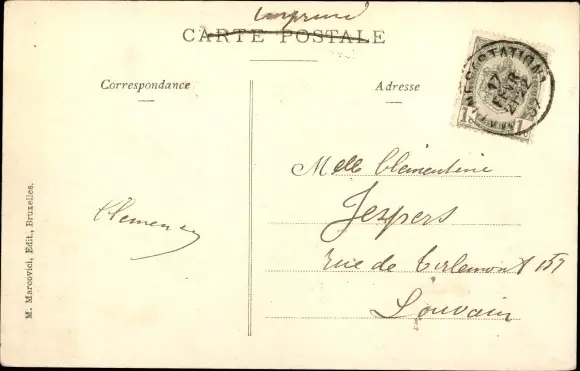 Imprimé
CARTE POSTALE
Correspondance
Adresse
NESSTATION)
17
FEVR
07
1 1
Melle Clémentine
Jespers
rue de Tirlemont 157
Louvain
M. Marcovici, Edit., Bruxelles.